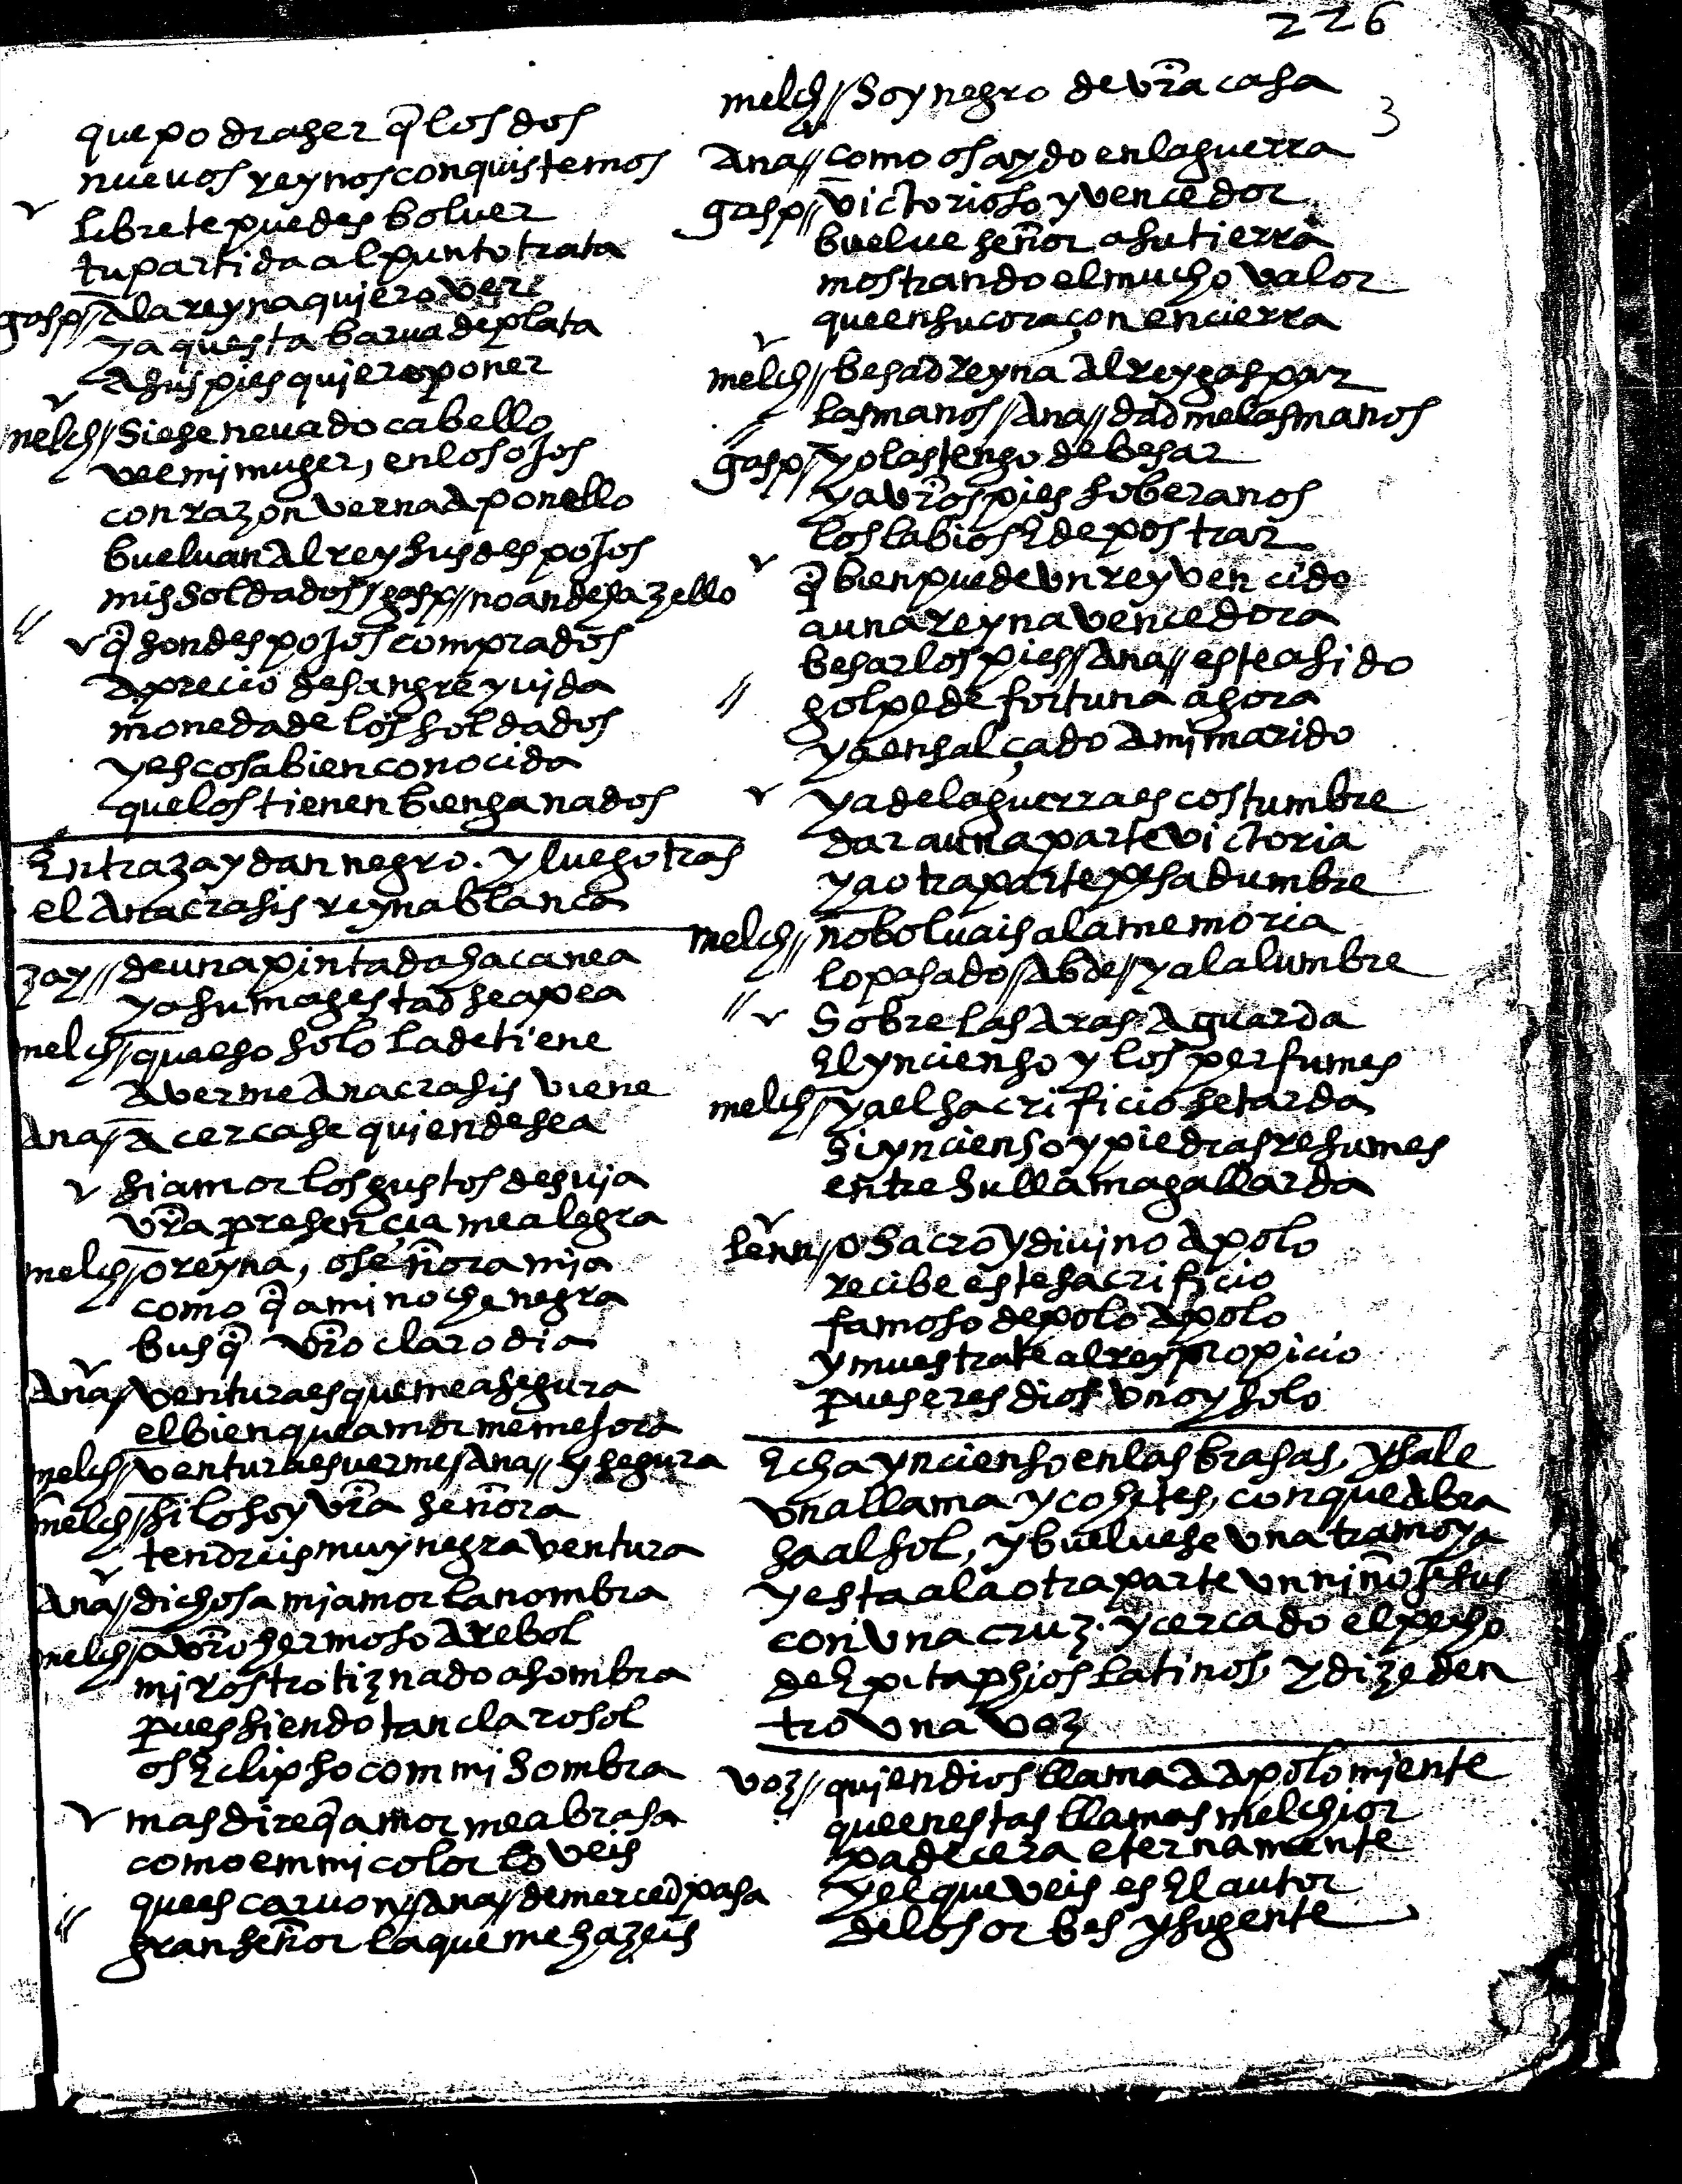 226
3
que podra ser q̃ los dos
nueuos reynos conquistemos
libre te puedes boluer
tu partida al punto trata
gasp// A la reyna quiero ver
y aquesta barua de plata
A sus pies quiero poner
melch// Si ese neuado cabello
vee mi muger, en los ojos
con razon verna A ponello
bueluan Al rey sus despojos
mis soldados// gasp// no an de hazello
q̃ son despojos comprados
A precio de sangre y vida
moneda de los soldados
y es cosa bien conocida
que los tienen bien ganados
Entra zaydan negro. y luego tras
el Anacrasis reyna blanca
zay// de una pintada hacanea
ya su magestad se apea
melch// que eso solo la detiene
A verme Anacrasis viene
Ana// A cercase quien desea
si amor los gustos desuia
vr̃a presençia me alegra
melch// o reyna, o señora mia
como q̃ a mi noche negra
busq̃ vr̃o claro dia
Ana// ventura es que me asegura
el bien que amor me mejora
melch// ventura es verme// Ana// y segura
melch// si lo soy vr̃a señora
tendreis muy negra ventura
Ana// dichosa mi amor la nombra
melch// a vr̃o hermoso Arebol
mi rostro tiznado asombra
pues siendo tan claro sol
os Eclipso com mi sombra
mas dire q̃ amor me abrasa
como em mi color lo veis
que es caruon// Ana// de merced pasa
gran señor la que me hazeis
melch// Soy negro de vr̃a casa
Ana// como os a ydo en la guerra
gasp// victorioso y vencedor
buelue señor a su tierra
mostrando el mucho valor
que en su coraçon encierra
melch// besad Reyna Al rey gaspar
las manos// Ana// dad me las manos
gasp// yo las tengo de besar
y a vr̃os pies soberanos
los labios E de postrar
q̃ bien puede un rey vencido
a una reyna vencedora
besar los pies// Ana// este a sido
golpe de fortuna agora
y a ensalçado A mi marido
ya de la guerra es costumbre
dar a una parte victoria
y a otra parte pesadumbre
melch// no boluais a la memoria
lo pasado// Abde// ya la lumbre
Sobre las Aras Aguarda
El ynciensο y los perfumes
melch// ya el sacrificio se tarda
si ynciensο y piedras resumes
entre su llama gallarda
lenn// o Sacro y diuino Apolo
recibe este sacrificio
famoso de polo A polo
y muestrate al rey propicio
pues eres dios uno y solo
Echa ynciensο en las brasas, y sale
una llama y cohetes, con que Abra
sa al sol, y bueluese una tramoya
y esta a la otra parte un niño Jhesus
con una cruz. y cercado el pecho
de Epitaphios latinos, y dize den
tro una voz
voz// quien dios llama A Apolo miente
que en estas llamas melchior
padecera eternamente
y el que veis es El autor
de los orbes y su gente